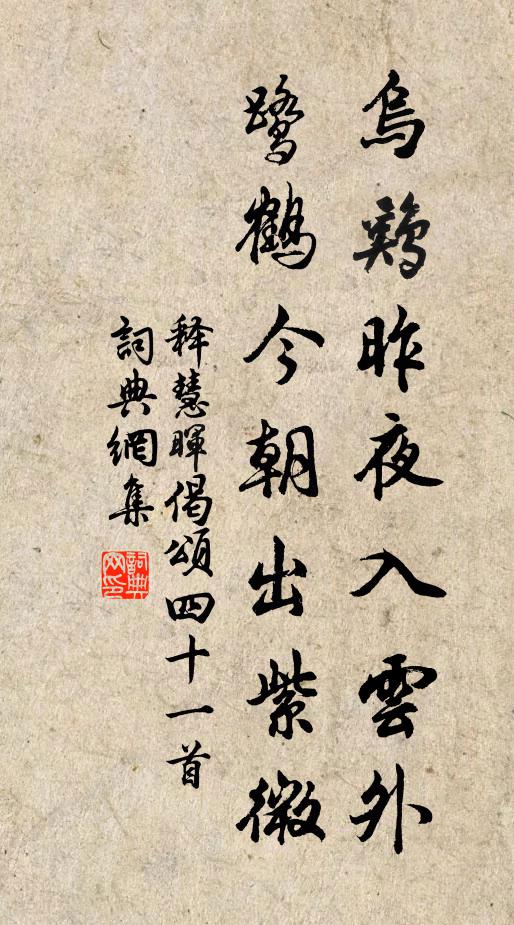 烏鷄昨夜入雲外
鷺鶴今朝出紫微
释慧暉偈頌四十一首
詞典網集
詞典网印